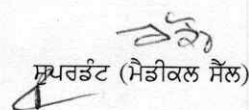 ਸੁਪਰਡੰਟ (ਮੈਡੀਕਲ ਸੈੱਲ)